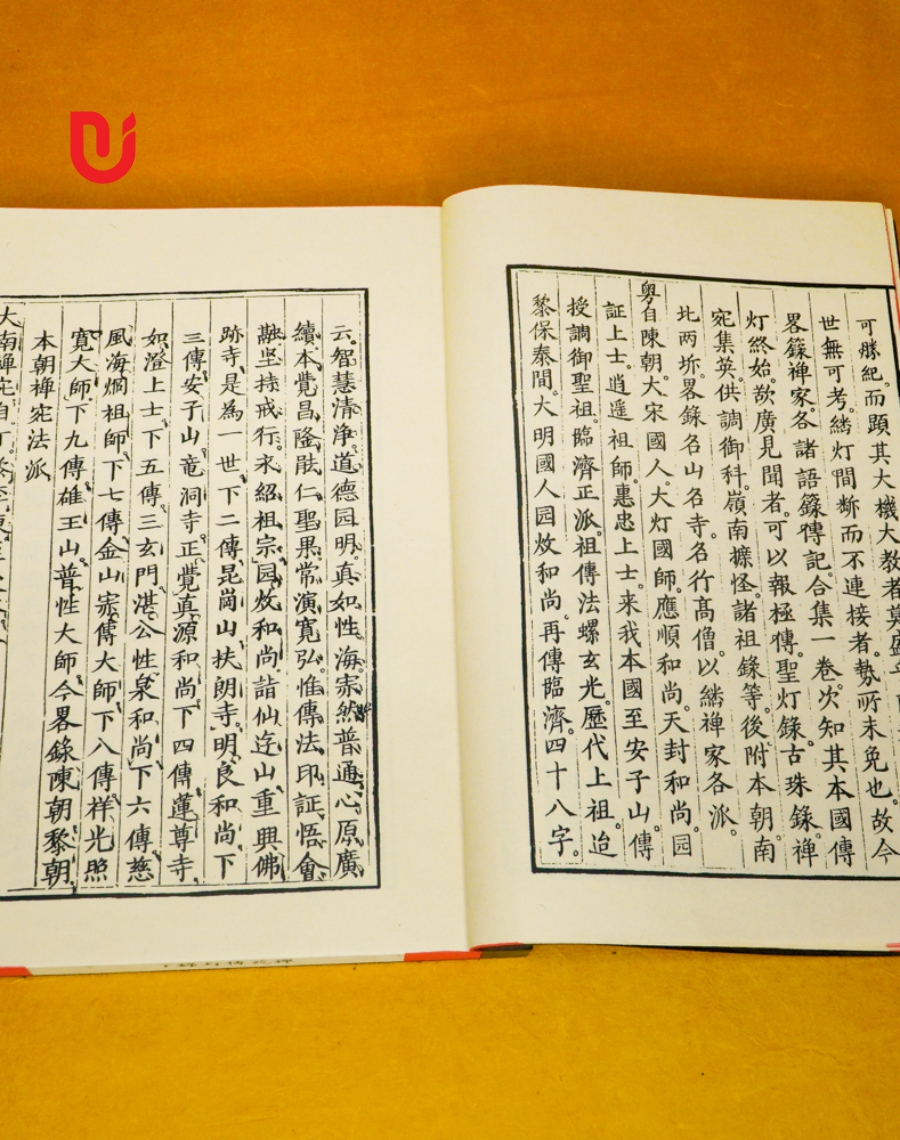 可勝紀。而顕其大機大教者莫盛
世無可考。綉灯間断而不連接者。勢所未免也。故今
畧籙禅家。各諸語籙傳記。合集一卷。次知其本國傳
灯終始。欲廣見聞者。可以報極傳。聖灯錄。古珠錄。禅
宛集英。供調御科。嶺南摭怪。諸祖錄等。後附本朝南
北两坼。畧錄名山名寺。名行髙僧。以綉禅家各派。
粤自陳朝。大宋國人。大灯國師。應順和尚。天封和尚。园
証上士。逍遥祖師。惠忠上士。来我本國至安子山傳
授調御聖祖。臨濟正派。祖傳法螺玄光。歷代上祖。迨
黎保泰間。大明國人园炆和尚。再傳臨濟。四十八字。
云。智慧清浄。道德园明。真如性海。寂然普通。心原廣
續。本覺昌隆。能仁聖果。常演寛弘。惟傳法印。証悟會
融。坚持戒行。永紹祖宗。园炆和尚詣仙迬山重興佛
跡寺。是為一世。下二傳。昆崗山扶朗寺。明良和尚下
三傳。安子山竜洞寺。正覺真源和尚下四傳。蓮尊寺。
如澄上士。下五傳。三玄門。湛公性泉和尚。下六傳。慈
風海烱祖師。下七傳金山寂傳大師。下八傳。祥光照
寛大師。下九傳雄王山。普性大師。今畧錄陳朝黎朝
本朝禅宛法派
大南禅宛自丁